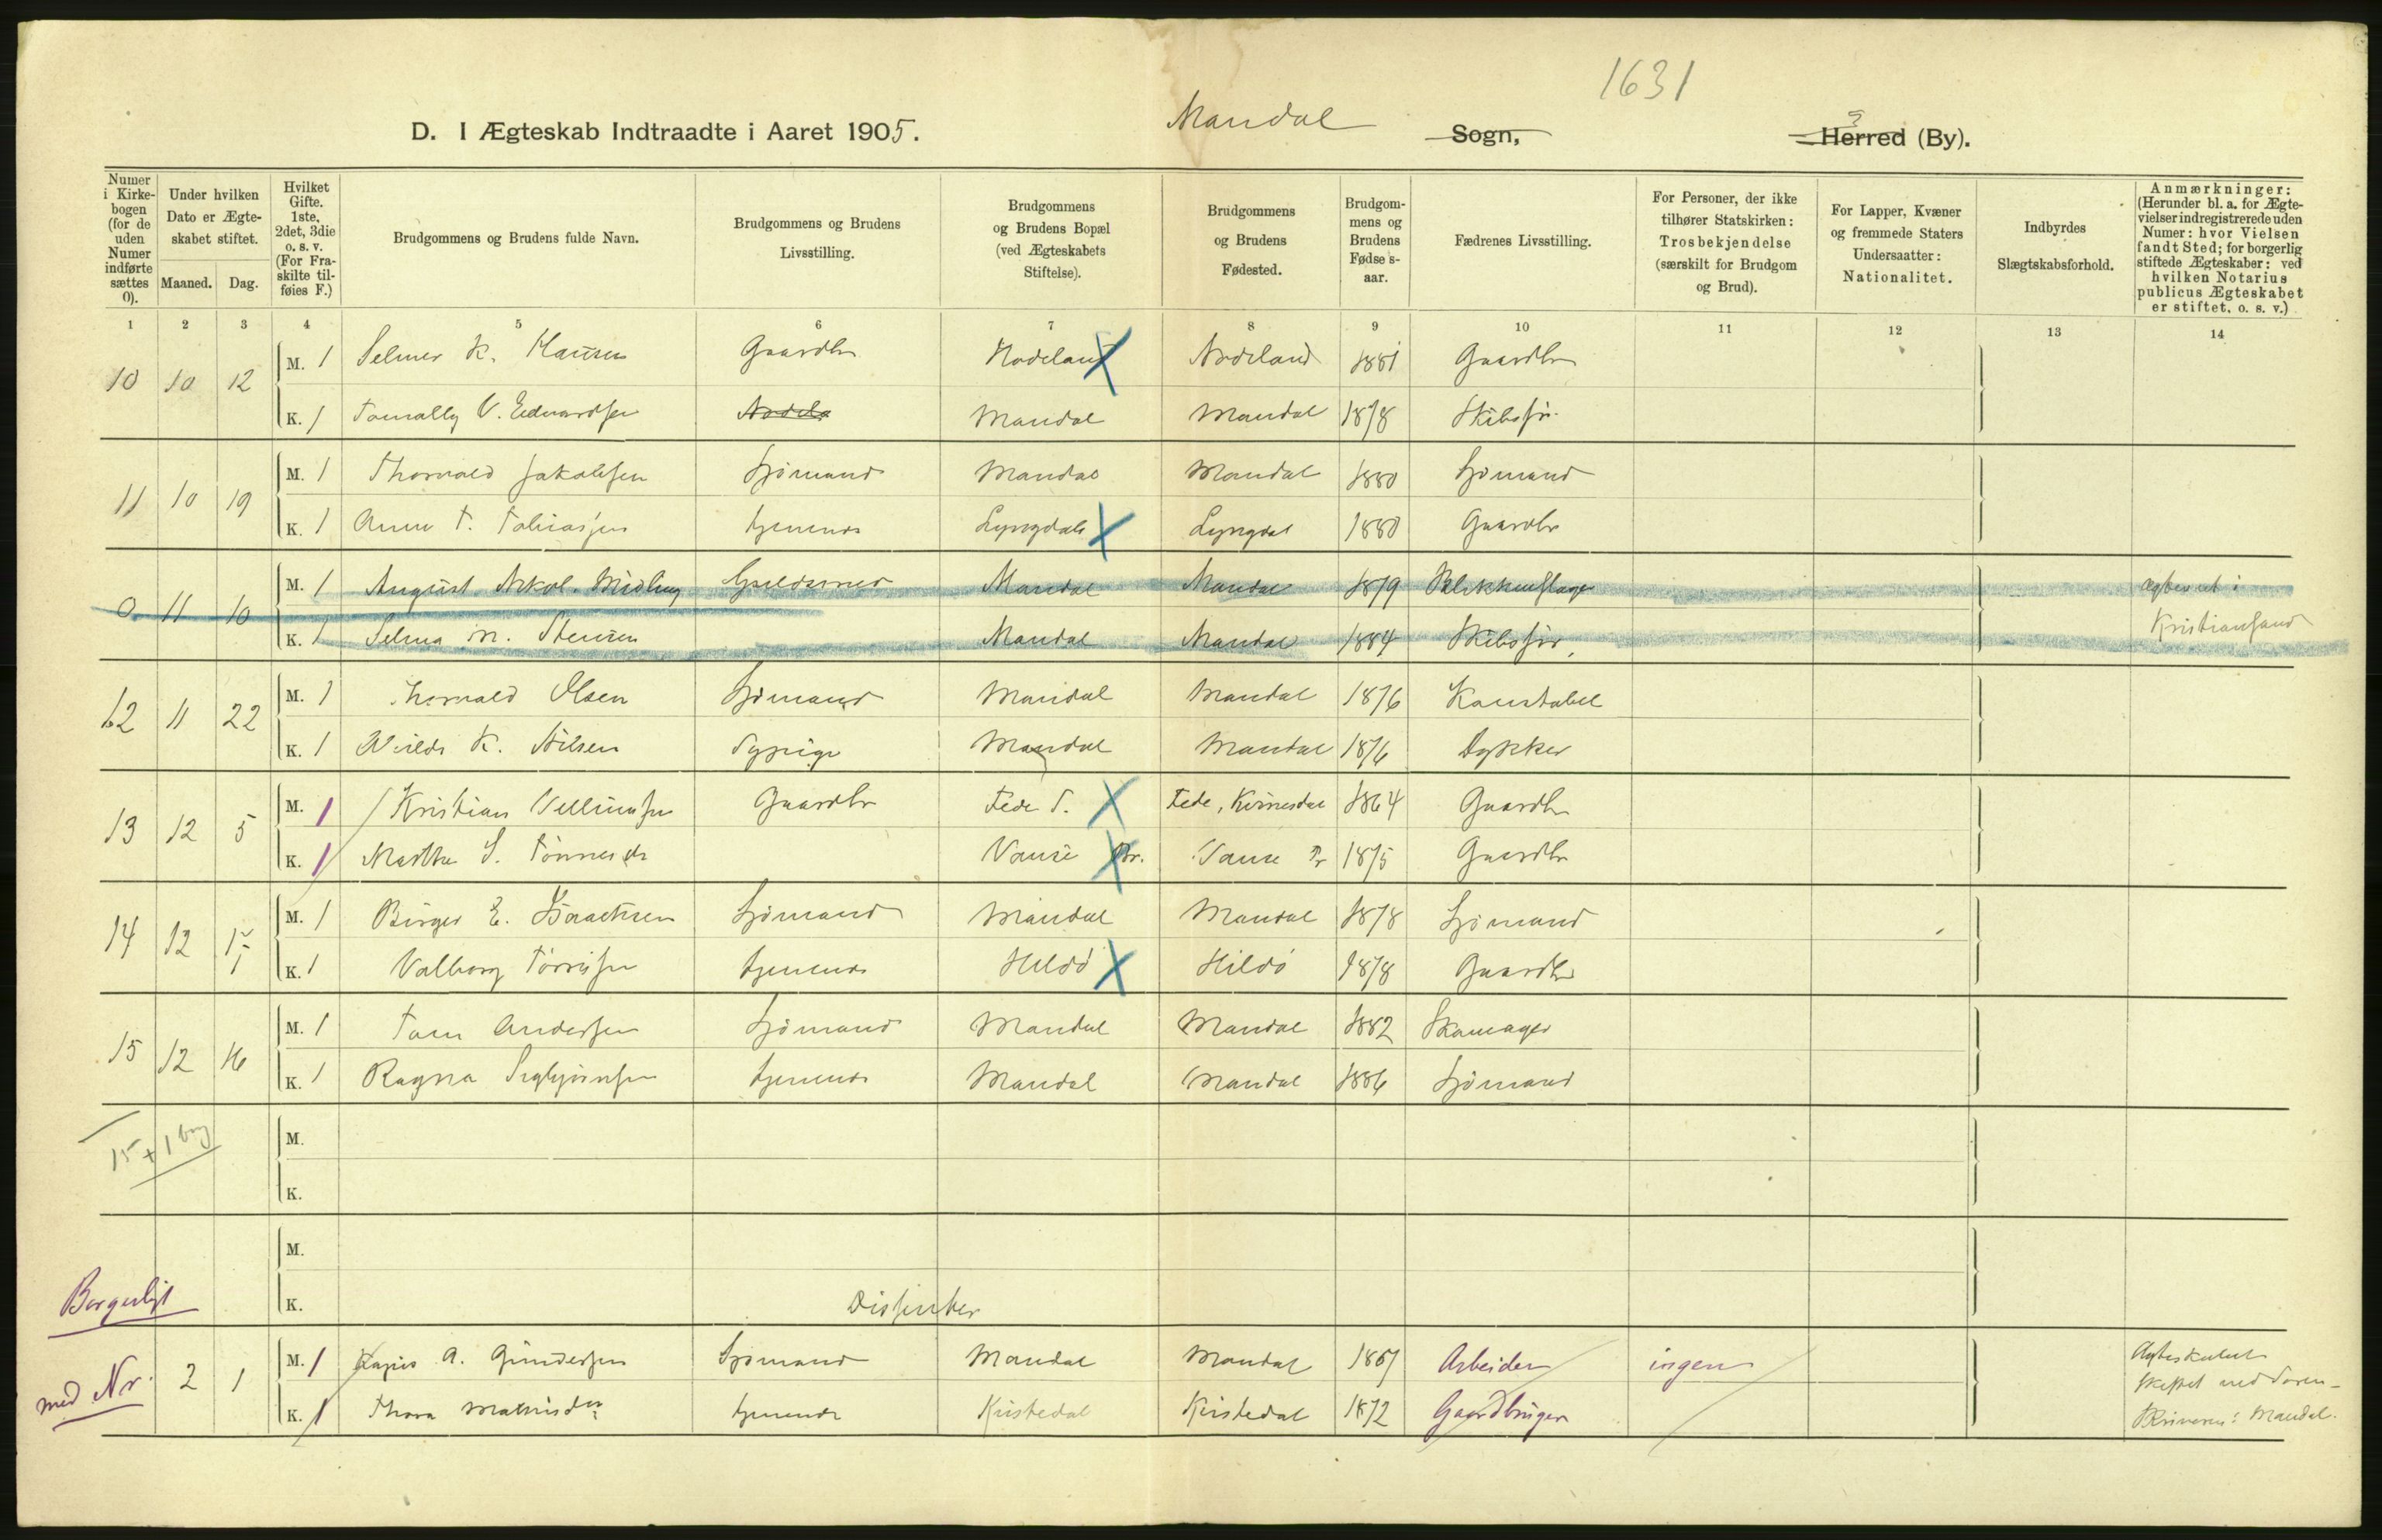 1631
D. I Ægteskab Indtraadte i Aaret 1905. Mandal Sogn, Herred (By).
Numer i Kirkebogen (for de uden Numer indførte sættes 0).
Under hvilken Dato er Ægteskabet stiftet.
Maaned. Dag.
Hvilket Gifte. 1ste, 2det, 3die o. s. v. (For Fraskilte tilføies F.)
Brudgommens og Brudens fulde Navn.
Brudgommens og Brudens Livsstilling.
Brudgommens og Brudens Bopæl (ved Ægteskabets Stiftelse).
Brudgommens og Brudens Fødested.
Brudgommens og Brudens Fødselsaar.
Fædrenes Livsstilling.
For Personer, der ikke tilhører Statskirken: Trosbekjendelse (særskilt for Brudgom og Brud).
For Lapper, Kvæner og fremmede Staters Undersaatter: Nationalitet.
Indbyrdes Slægtskabsforhold.
Anmærkninger: (Herunder bl. a. for Ægtevielser indregistrerede uden Numer: hvor Vielsen fandt Sted; for borgerlig stiftede Ægteskaber: ved hvilken Notarius publicus Ægteskabet er stiftet, o. s. v.)
1 2 3 4 5 6 7 8 9 10 11 12 13 14
10 10 12 M. 1 Selmer K. Hansen Gaardbr Nodeland Nodeland 1881 Gaardbr
K. 1 V. Edvardsen Mandal Mandal 1878 Skibsfør.
11 10 19 M. 1 Thorvald Jakobsen Sjømand Mandal Mandal 1880 Sjømand
K. 1 Anne T. Tobiasen tjenende Lyngdal Lyngdal 1880 Gaardbr
0 11 10 M. 1 August Mandal Mandal 1879 Blikkenslager
K. 1 Selma M. Mandal Mandal 1884 Skibsfør. Kristiansand
12 11 22 M. 1 Thorvald Olsen Sjømand Mandal Mandal 1876 Konstabel
K. 1 K. Nilsen Sypige Mandal Mandal 1876 Dykker
13 12 5 M. 1 Kristian Gaardbr Fede S. Fede, Kvinesdal 1864 Gaardbr
K. 1 Marthe S. Vanse Pr. Vanse Pr 1875 Gaardbr
14 12 15 M. 1 Birger E. Isaachsen Sjømand Mandal Mandal 1878 Sjømand
K. 1 Valborg Tørrisen tjenende Hildø Hildø 1878 Gaardbr
15 12 16 M. 1 Tom Andersen Sjømand Mandal Mandal 1882 Skomager
K. 1 Ragna tjenende Mandal Mandal 1886 Sjømand
15 + 1 borg
M.
K.
M.
Borgerligt
K. Dissenter
med Nr. 2 1 M. 1 A. Gundersen Sjømand Mandal Mandal Arbeider ingen
K. 1 Thora tjenende 1872 Gaardbruger
Mandal.